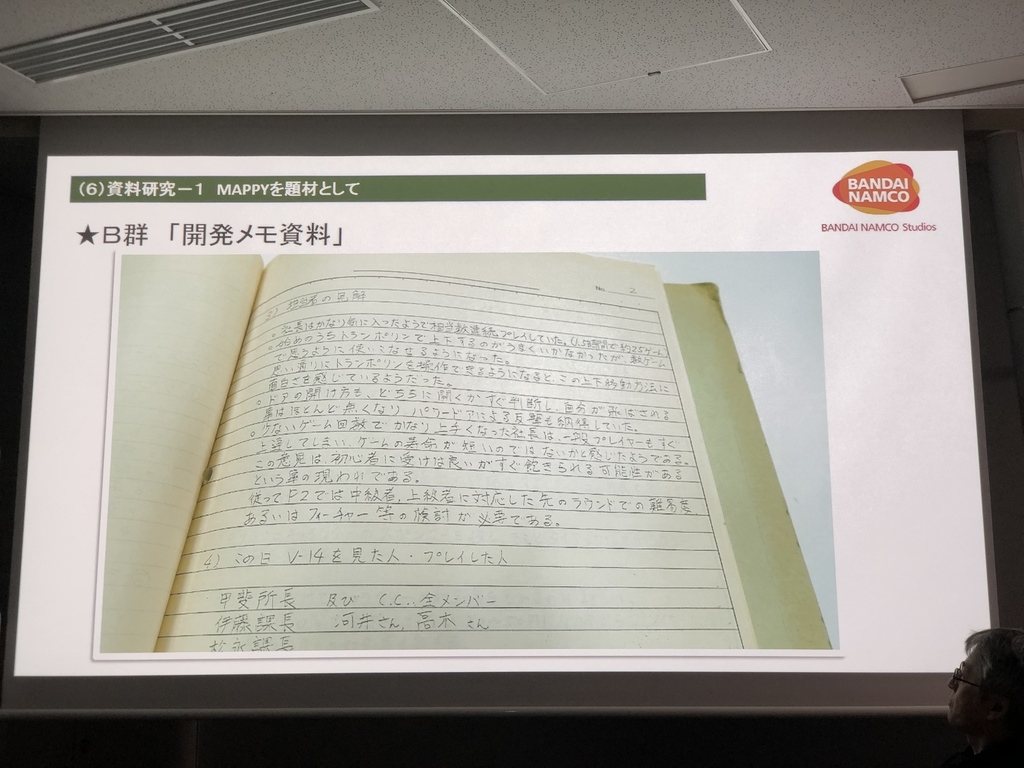 (6)資料研究－1 MAPPYを題材として
BANDAI
NAMCO
BANDAI NAMCO Studios
★B群 「開発メモ資料」
No. 2
3) 担当の見解
○ 社長はかなり気に入ったようで相当数連続プレイしていた。(1.5時間で約25ゲーム)
○ 始めのうちトランポリンで上下するのがうまくいかなかったが、数ゲーム
で思うように使いこなせるようになった。
思い通りにトランポリンを操作できるようになると、この上下移動方法に
面白さを感じているようだった。
○ ドアの開け方も、どちらに開くかすぐ判断し、自分が飛ばされる
事はほとんど無くなり、パワードアによる反撃も納得していた。
○ 少ないゲーム回数でかなり上手くなった社長は、一般プレイヤーもすぐ
上達してしまい、ゲームの寿命が短いのではないかと感じたようである。
この意見は、初心者に受けは良いがすぐ飽きられる可能性がある
という事の現われである。
従ってP2では中級者、上級者に対応した先のラウンドでの難易度
あるいはフィーチャー等の検討が必要である。
4) この日 V-14を見た人・プレイした人
甲斐所長 及び C.C.全メンバー
伊藤課長 河井さん, 高木さん
松永課長